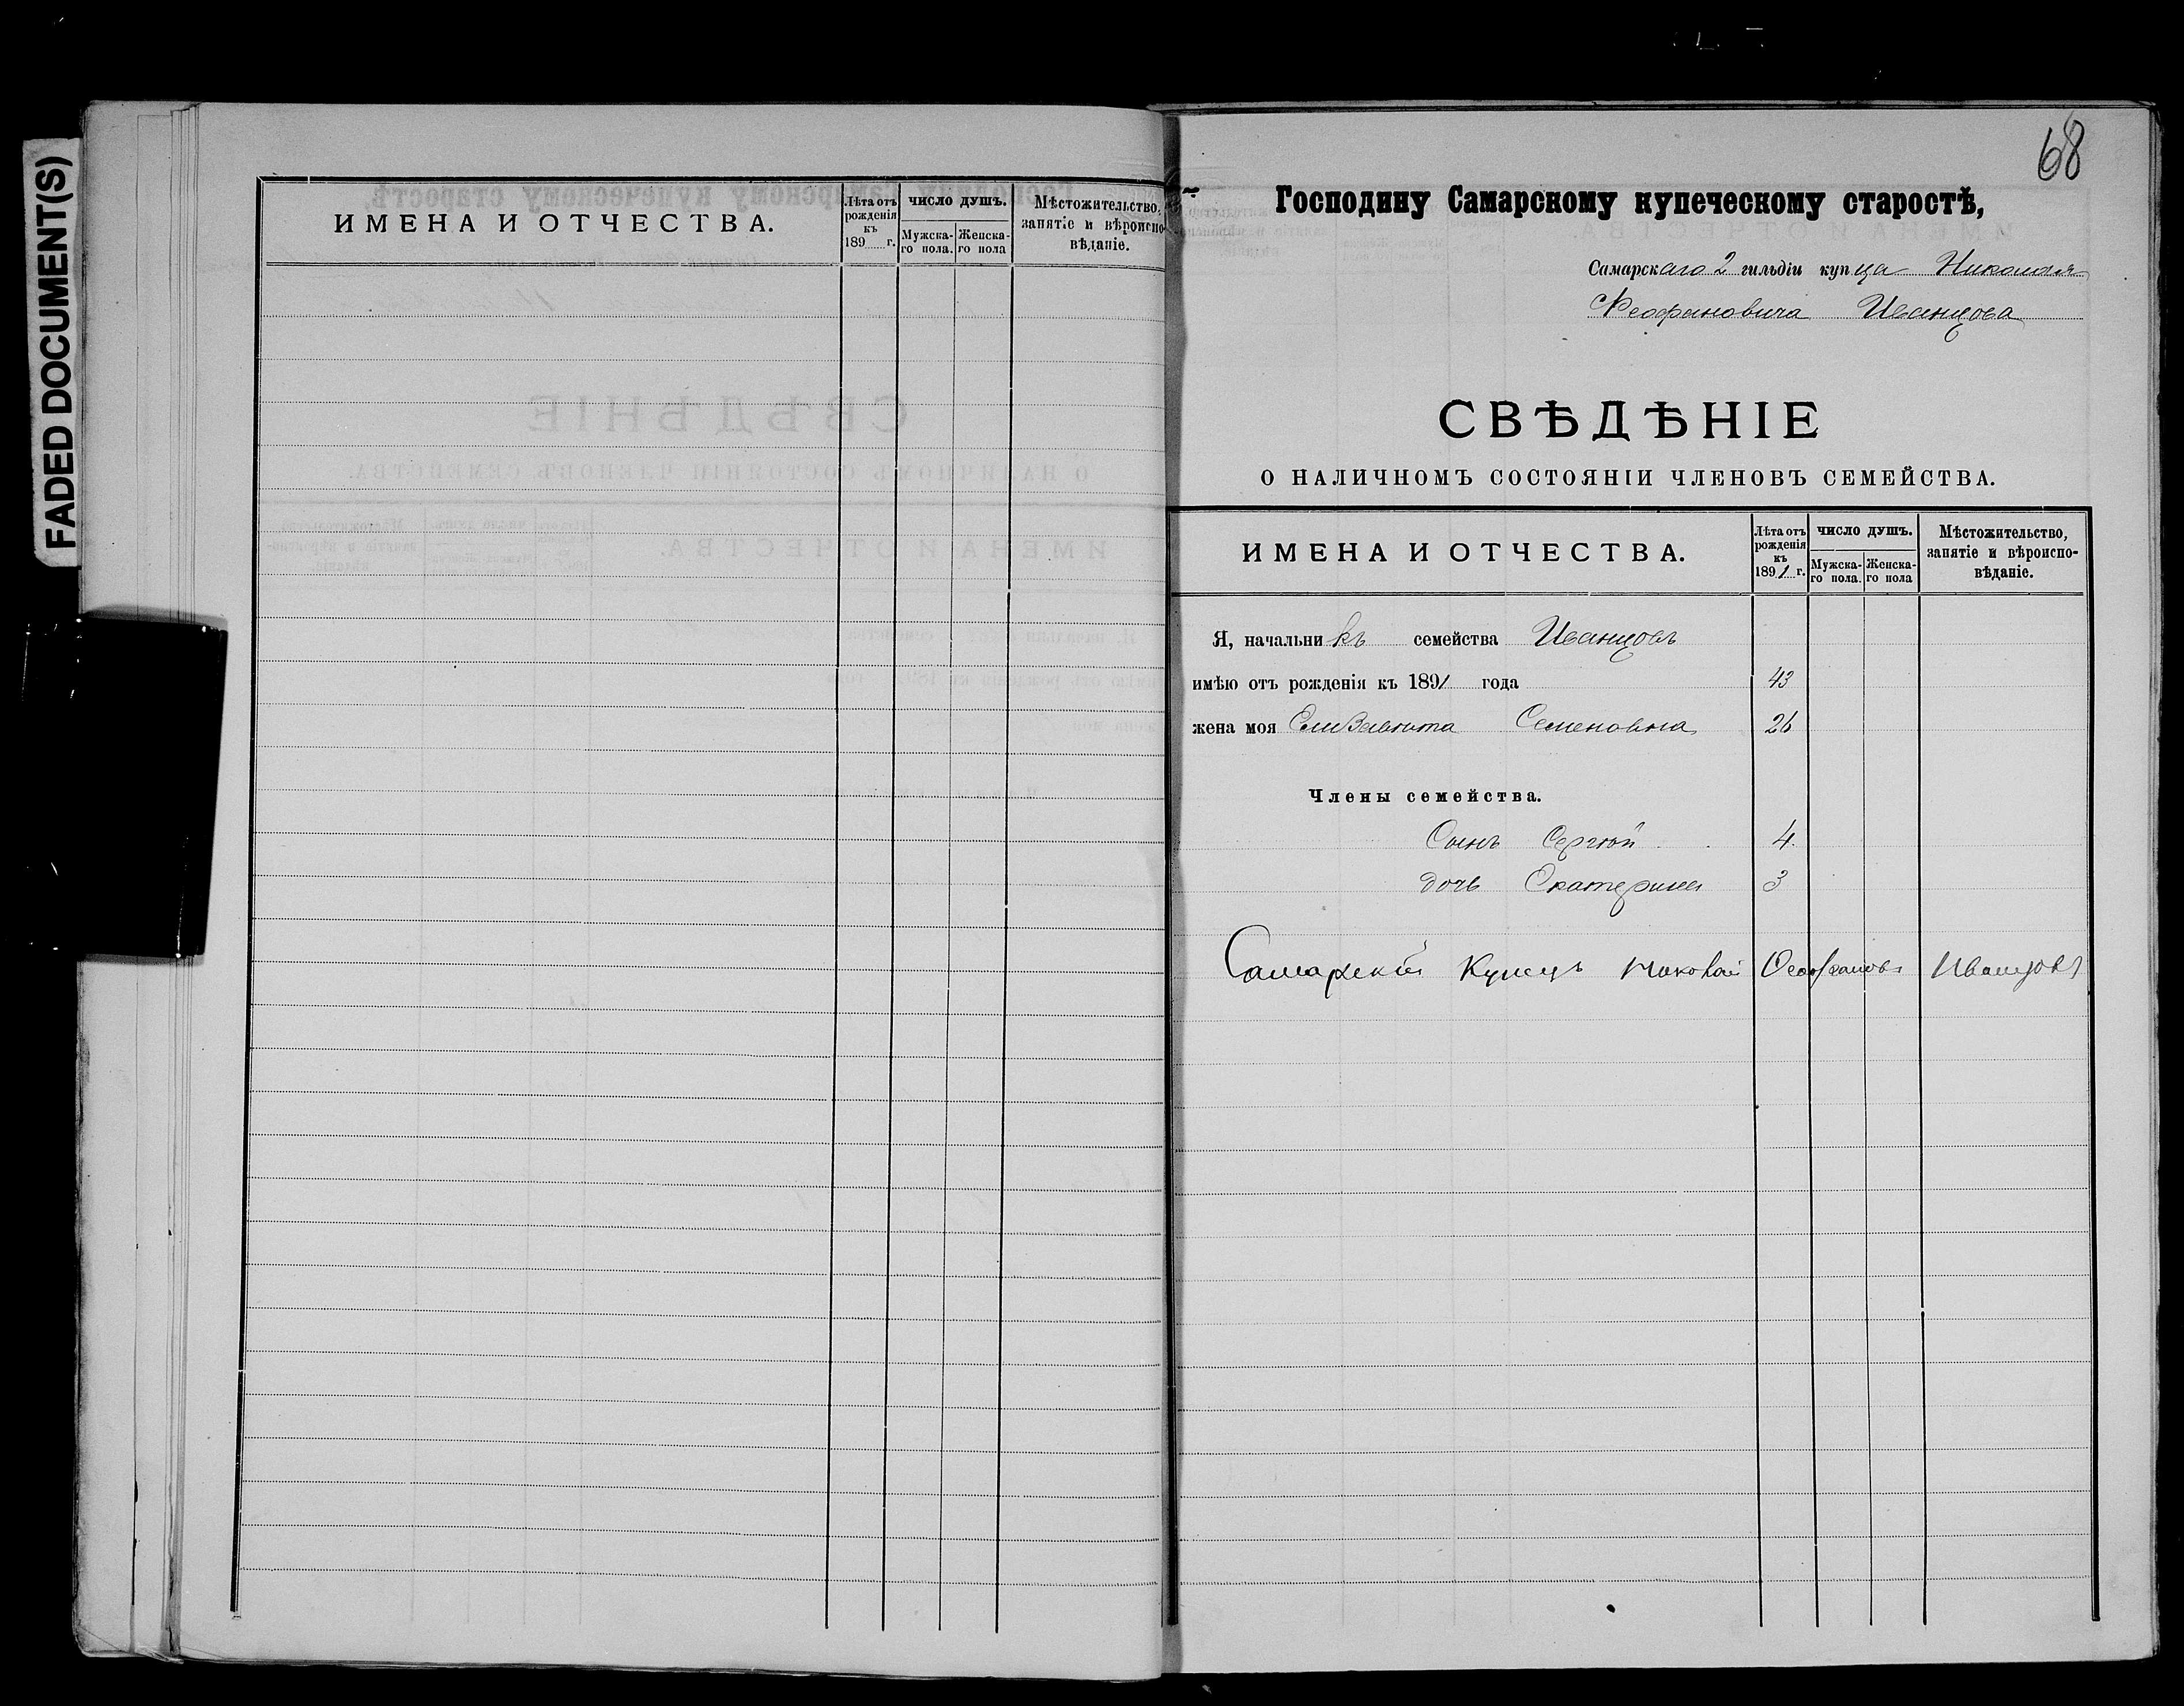 FADED DOCUMENT(S)
ИМЕНА И ОТЧЕСТВА.
Лѣта отъ рожденія къ 189 г.
ЧИСЛО ДУШЪ.
Мужска-го пола.
Женска-го пола
Мѣстожительство, занятіе и вѣроиспо-вѣданіе.
68
Господину Самарскому купеческому старостѣ,
Самарскаго 2 гильдіи купца Николая
Феофановича Иванцова
СВѢДѢНІЕ
О НАЛИЧНОМЪ СОСТОЯНІИ ЧЛЕНОВЪ СЕМЕЙСТВА.
ИМЕНА И ОТЧЕСТВА.
Лѣта отъ рожденія къ 1891 г.
ЧИСЛО ДУШЪ.
Мужска-го пола.
Женска-го пола
Мѣстожительство, занятіе и вѣроиспо-вѣданіе.
Я, начальникъ семейства Иванцовъ
имѣю отъ рожденія къ 1891 года 43
жена моя Елизавѣта Семеновна 26
Члены семейства.
Сынъ Сергѣй 4.
дочь Екатерина 3
Самарскій Купецъ Николай Феофановъ Иванцовъ